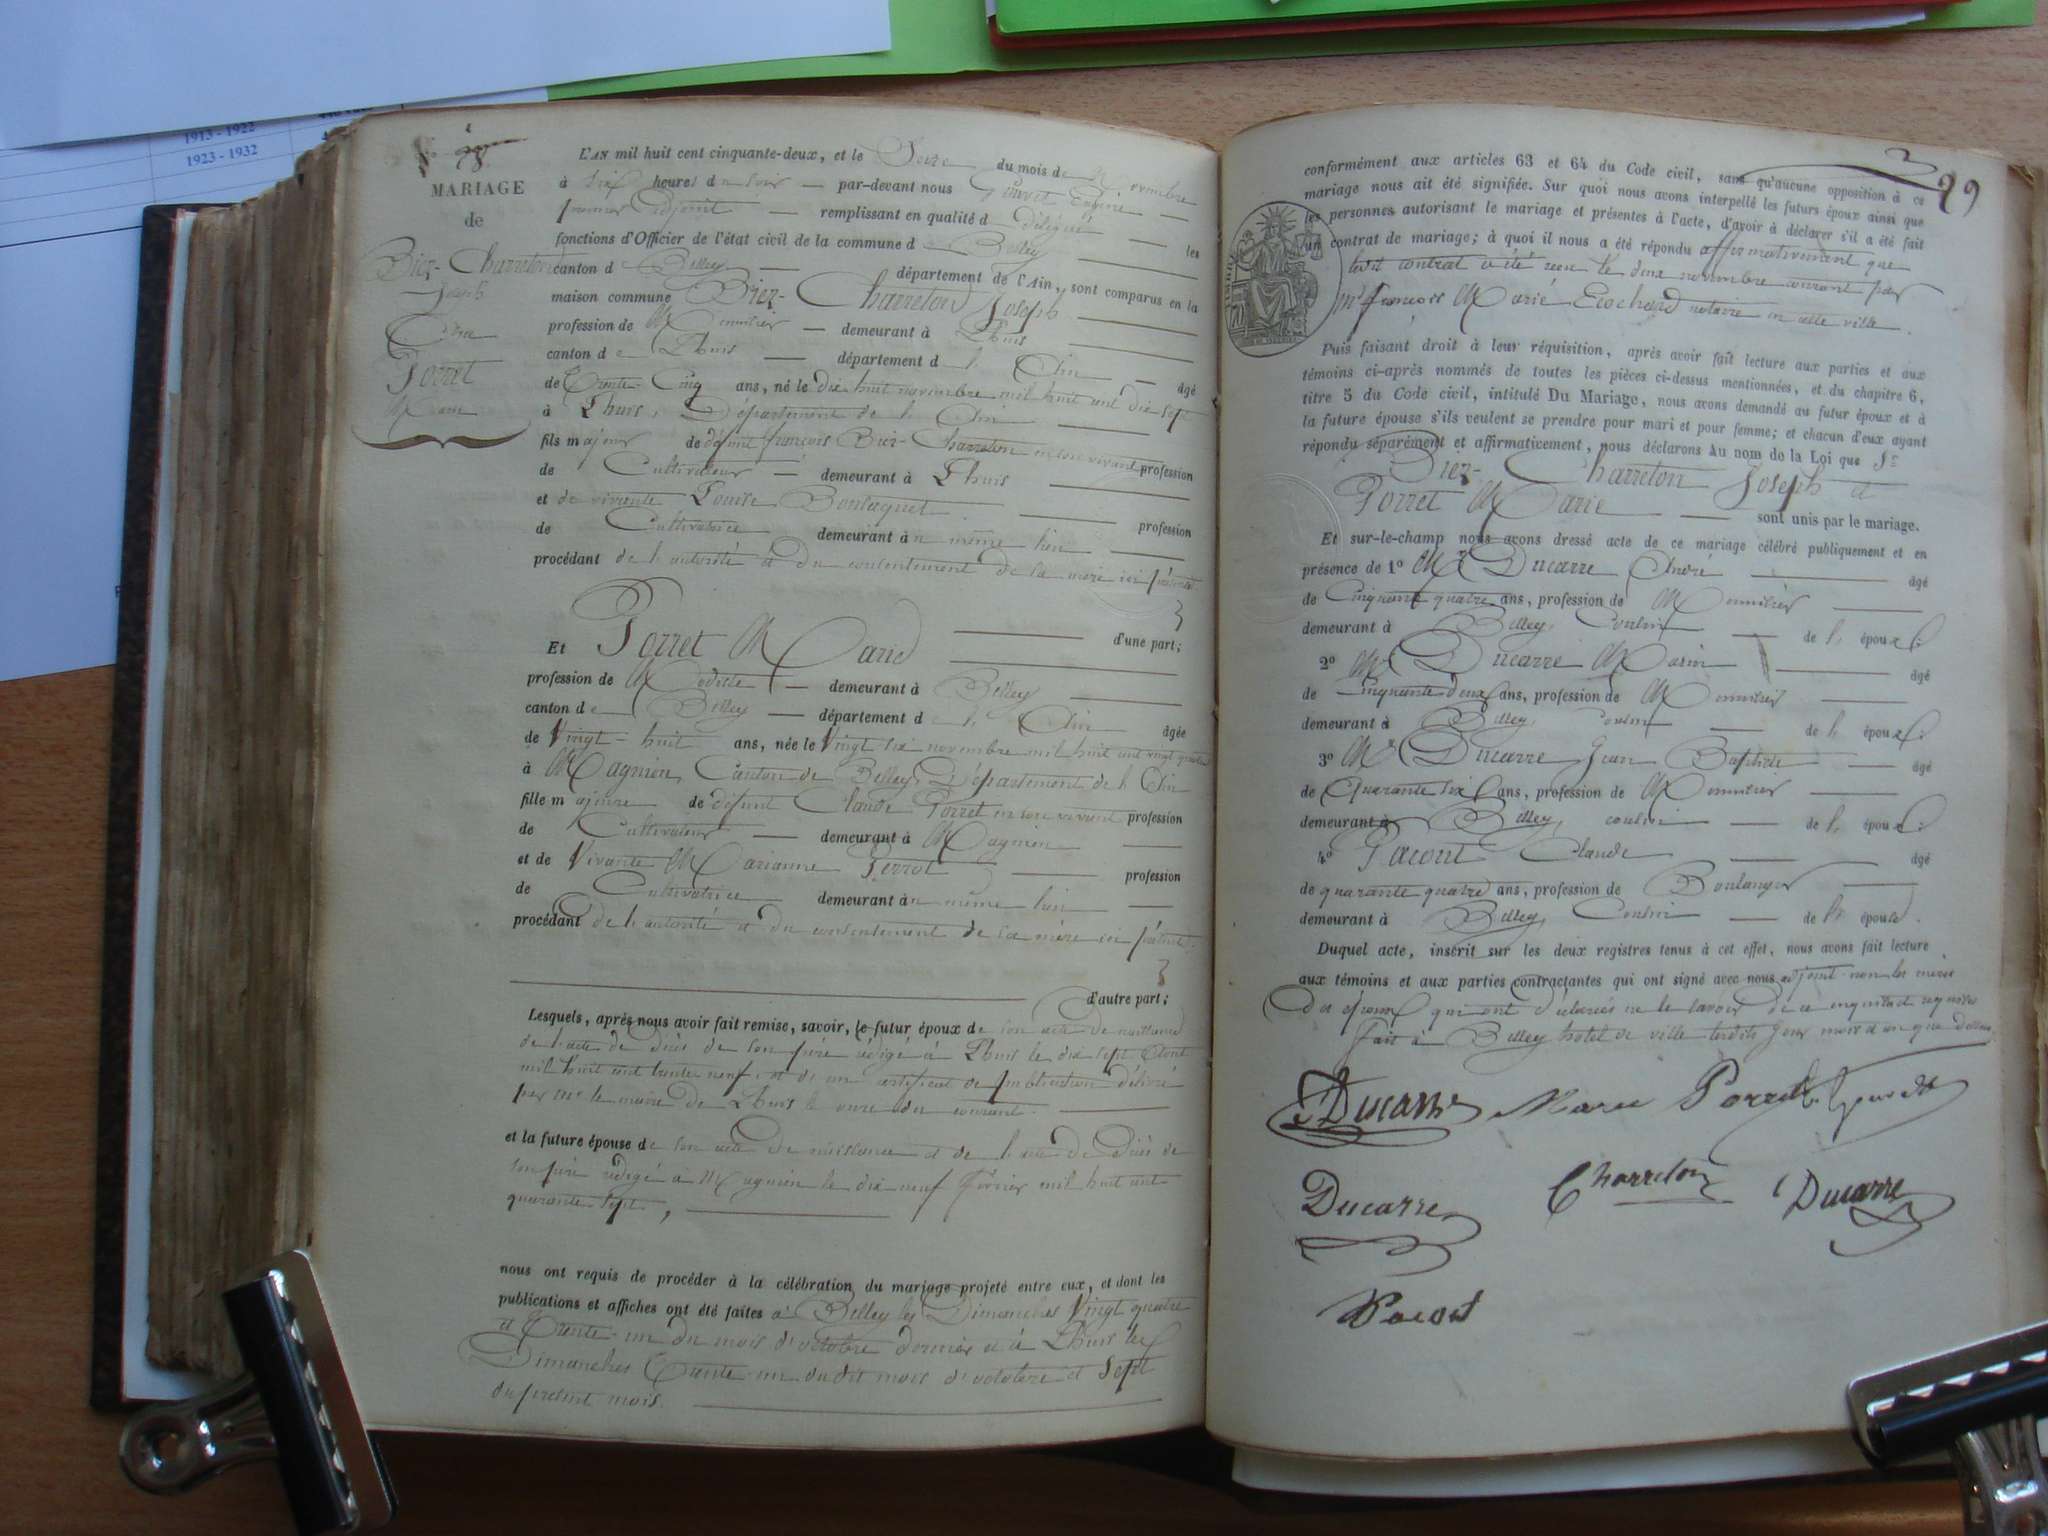 1913 - 1922
1923 - 1932
N° 28
MARIAGE
de
Biez-Charreton
Joseph
Et
Porret
Marie
L'AN mil huit cent cinquante-deux, et le Seize du mois de Novembre
à six heures du soir par-devant nous
premier adjoint remplissant en qualité de délégué les
fonctions d'Officier de l'état civil de la commune de Belley
canton de Belley département de l'Ain, sont comparus en la
maison commune Biez-Charreton Joseph
profession de Menuisier demeurant à Lhuis
canton de Lhuis département de l'Ain âgé
de Trente-Cinq ans, né le dix huit novembre mil huit cent dix sept
à Lhuis, Département de l'Ain
fils majeur de défunt françois Biez-Charreton en son vivant profession
de Cultivateur demeurant à Lhuis
et de vivante Louise profession
de Cultivatrice demeurant au même lieu
procédant de l'autorité et du consentement de la mère ici présente
d'une part;
Et Porret Marie
profession de Modiste demeurant à Belley
canton de Belley département de l'Ain âgée
de Vingt-huit ans, née le Vingt six novembre mil huit cent vingt quatre
à Magnieu, Canton de Belley, Département de l'Ain
fille majeure de défunt Claude Porret en son vivant profession
de Cultivateur demeurant à Magnieu
et de Vivante Marianne Perrot profession
de Cultivatrice demeurant au même lieu
procédant de l'autorité et du consentement de sa mère ici présente
d'autre part;
Lesquels, après nous avoir fait remise, savoir, le futur époux de son acte de naissance
de l'acte de décès de son père rédigé à Lhuis le dix sept Août
mil huit cent trente neuf, et de un certificat de publication délivré
par Mr le maire de Lhuis le onze du courant.
et la future épouse de son acte de naissance et de l'acte de décès de
son père rédigé à Magnieu le dix neuf Février mil huit cent
quarante sept,
nous ont requis de procéder à la célébration du mariage projeté entre eux, et dont les
publications et affiches ont été faites à Belley les Dimanches Vingt quatre
et Trente-un du mois d'octobre dernier et à Lhuis les
Dimanches Trente-un dudit mois d'octobre et Sept
du présent mois.
99
conformément aux articles 63 et 64 du Code civil, sans qu'aucune opposition à ce
mariage nous ait été signifiée. Sur quoi nous avons interpellé les futurs époux ainsi que
les personnes autorisant le mariage et présentes à l'acte, d'avoir à déclarer s'il a été fait
un contrat de mariage; à quoi il nous a été répondu affirmativement que
ledit contrat a été reçu le deux novembre courant par
Me françois Marie Ecochard notaire en cette ville.
Puis faisant droit à leur réquisition, après avoir fait lecture aux parties et aux
témoins ci-après nommés de toutes les pièces ci-dessus mentionnées, et du chapitre 6,
titre 5 du Code civil, intitulé Du Mariage, nous avons demandé au futur époux et à
la future épouse s'ils veulent se prendre pour mari et pour femme; et chacun d'eux ayant
répondu séparément et affirmativement, nous déclarons Au nom de la Loi que Sr
Biez-Charreton Joseph et
Porret Marie sont unis par le mariage.
Et sur-le-champ nous avons dressé acte de ce mariage célébré publiquement et en
présence de 1° Mr Ducarre André âgé
de Cinquante quatre ans, profession de Menuisier
demeurant à Belley, Cousin de l'époux;
2° Mr Ducarre Marin âgé
de Cinquante deux ans, profession de Menuisier
demeurant à Belley, cousin de l'époux;
3° Mr Ducarre Jean Baptiste âgé
de Quarante six ans, profession de Menuisier
demeurant à Belley, cousin de l'époux;
4° Pacout Claude âgé
de quarante quatre ans, profession de Boulanger
demeurant à Belley, Cousin de l'épouse.
Duquel acte, inscrit sur les deux registres tenus à cet effet, nous avons fait lecture
aux témoins et aux parties contractantes qui ont signé avec nous adjoint non les mères
des époux qui ont déclarés ne le savoir de ce enquis et requises
fait à Belley hôtel de ville lesdits jour mois et an que dessus
Ducarre Marie Porret
Ducarre Charreton Ducarre
Pacout